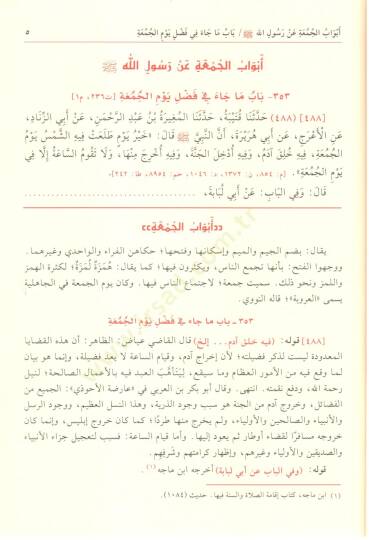 أَبْوَابُ الجُمُعَةِ عَنْ رَسُولِ الله ﷺ / بَابُ مَا جَاءَ فِي فَضْلِ يَوْمِ الجُمُعَةِ ٥
أَبْوَابُ الجُمُعَةِ عَنْ رَسُولِ اللهِ ﷺ
٣٥٣- بَابُ مَا جَاءَ فِي فَضْلِ يَوْمِ الجُمُعَةِ [ت٢٣٦، م١]
[٤٨٨] (٤٨٨) حَدَّثَنَا قُتَيْبَةُ، حَدَّثَنَا المُغِيرَةُ بْنُ عَبْدِ الرَّحْمَنِ، عَنْ أَبِي الزِّنَادِ،
عَنِ الْأَعْرَجِ، عَنْ أَبِي هُرَيْرَةَ، أَنَّ النَّبِيَّ ﷺ قَالَ: «خَيْرُ يَوْمٍ طَلَعَتْ فِيهِ الشَّمْسُ يَوْمُ
الجُمُعَةِ، فِيهِ خُلِقَ آدَمُ، وَفِيهِ أُدْخِلَ الجَنَّةَ، وَفِيهِ أُخْرِجَ مِنْهَا، وَلَا تَقُومُ السَّاعَةُ إِلَّا فِي
يَوْمِ الجُمُعَةِ». [م: ٨٥٤، ن: ١٣٧٢، د: ١٠٤٦، حم: ٨٩٥٤، طا: ٢٤٢].
قَالَ: وَفِي الْبَابِ: عَنْ أَبِي لُبَابَةَ،
«أَبْوَابُ الجُمُعَةِ»
يقال: بضم الجيم والميم وإسكانها وفتحها؛ حكاهن الفراء والواحدي وغيرهما.
ووجهوا الفتح: بأنها تجمع الناس، ويكثرون فيها؛ كما يقال: هُمَزَةٌ لُمَزَةٌ؛ لكثرة الهمز
واللمز ونحو ذلك. سميت جمعة؛ لاجتماع الناس فيها. وكان يوم الجمعة في الجاهلية
يسمى «العروبة»؛ قاله النووي.
٣٥٣- باب ما جاء في فَضْلِ يَوْمِ الجُمُعَةِ
[٤٨٨] قوله: (فيه خلق آدم... إلخ) قال القاضي عياض: الظاهر: أن هذه القضايا
المعدودة ليست لذكر فضيلته؛ لأن إخراج آدم، وقيام الساعة لا يعد فضيلة، وإنما هو بيان
لما وقع فيه من الأمور العظام وما سيقع، ليتأهب العبد فيه بالأعمال الصالحة؛ لنيل
رحمة الله، ودفع نقمته. انتهى. وقال أبو بكر بن العربي في «عارضة الأحوذي»: الجميع من
الفضائل، وخروج آدم من الجنة هو سبب وجود الذرية، وهذا النسل العظيم، ووجود الرسل
والأنبياء والصالحين والأولياء، ولم يخرج منها طردًا؛ كما كان خروج إبليس، وإنما كان
خروجه مسافرًا لقضاء أوطار ثم يعود إليها. وأما قيام الساعة: فسبب لتعجيل جزاء الأنبياء
والصديقين والأولياء وغيرهم، وإظهار كرامتهم وشَرفِهِم.
قوله: (وفي الباب عن أبي لبابة) أخرجه ابن ماجه (١).
(١) ابن ماجه، كتاب إقامة الصلاة والسنة فيها. حديث (١٠٨٤)